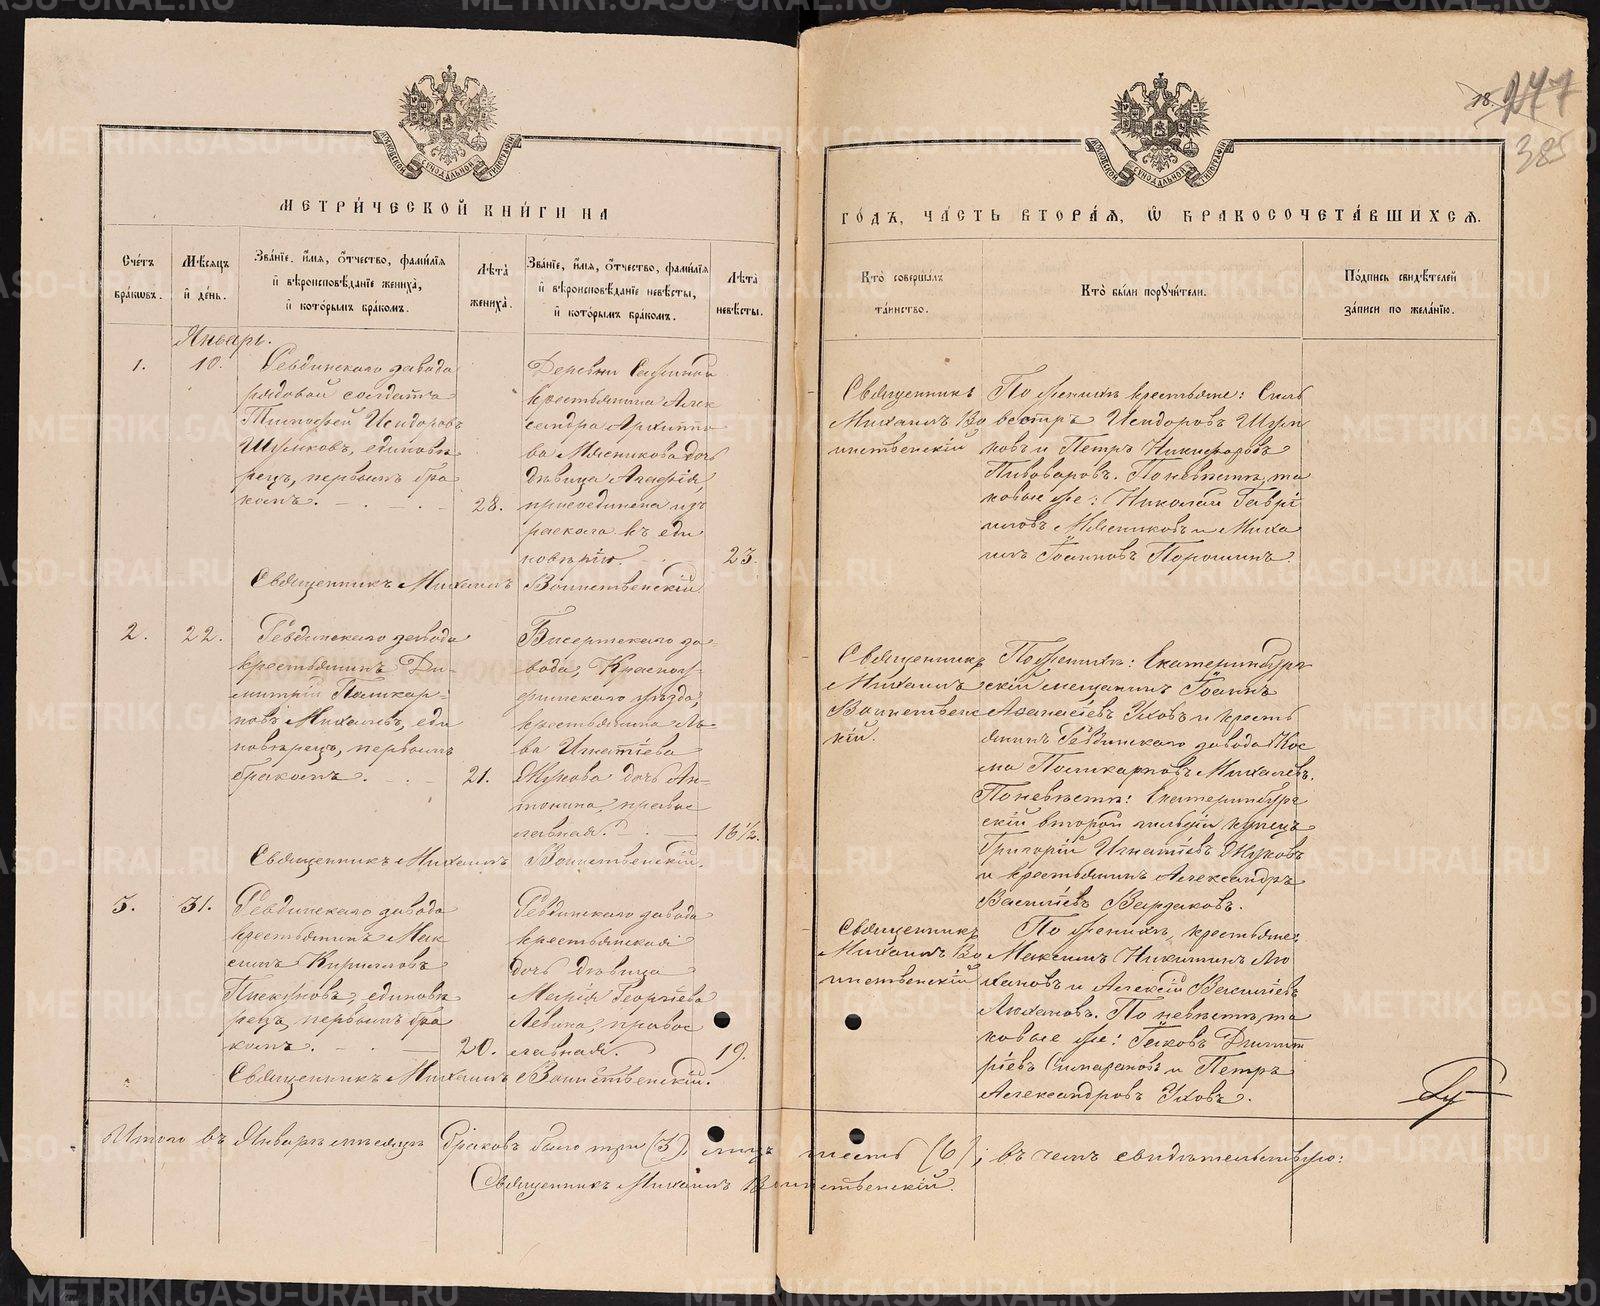 МЕТРИ́ЧЕСКОЙ КНИ́ГИ НА
Сче́тъ бра́кωвъ.
Мѣ́сяцъ и҆ де́нь.
Зва́нїе, и҆́мѧ, ѻ҆́тчество, фами́лїѧ и҆ вѣроисповѣ́данїе жениха̀, и҆ кото́рымъ бра́комъ.
Лѣта̀ жениха̀.
Зва́нїе, и҆́мѧ, ѻ҆́тчество, фами́лїѧ и҆ вѣроисповѣ́данїе невѣ́сты, и҆ кото́рымъ бра́комъ.
Лѣта̀ невѣ́сты.
Январь.
1.
10.
Ревдинскаго завода
рядовой солдатъ
Тимофей Исидоровъ
Шумковъ, единовѣ
рецъ, первымъ бра
комъ.
28.
Деревни
крестьянина Алек
сандра Архиппо
ва Мясникова дочь
дѣвица Агафія,
присоединена изъ
раскола къ еди
новѣрію.
23.
Священникъ Михаилъ Воинственскій
2.
22.
Ревдинскаго завода
крестьянинъ Ди-
митрій Поликар-
повъ Михалевъ, еди
новѣрецъ, первымъ
бракомъ.
21.
Бисертскаго за-
вода, Красноу-
фимскаго уѣзда,
крестьянина Ль-
ва Игнатіева
Жукова дочь Ан-
тонина, правос
лавная.
16½.
Священникъ Михаилъ Воинственскій.
3.
31.
Ревдинскаго завода
крестьянинъ Мак
симъ Кирилловъ
Пискуновъ, единовѣ
рецъ, первымъ бра
комъ.
20.
Ревдинскаго завода
крестьянская
дочь дѣвица
Марія Георгіева
Левина, правос
лавная.
19.
Священникъ Михаилъ Воинственскій.
Итого въ Январѣ мѣсяцѣ браковъ было три (3), лицъ шесть (6); въ чемъ свидѣтельствую:
Священникъ Михаилъ Воинственскій.
18
247
385
ГО́ДЪ, ЧА́СТЬ ВТОРА́Ѧ, Ѽ БРАКОСОЧЕТА́ВШИХСѦ.
Кто̀ соверша́лъ та́инство.
Кто̀ бы́ли порꙋчи́тели.
По́дпись свидѣ́телей за́писи по жела́нїю.
Священникъ
Михаилъ Во
инственскій
По женихѣ крестьяне: Силь
вестръ Исидоровъ Шум
ковъ и Петръ Никифоровъ
Пивоваровъ. По невѣстѣ, та
ковые же: Николай Гаврі
иловъ Мясниковъ и Миха
илъ Іоанновъ Порошинъ.
Священникъ
Михаилъ
Воинственс
кій.
По женихѣ: Екатеринбург
скій мещанинъ Іоаннъ
Аѳанасіевъ Уховъ и кресть
янинъ Ревдинскаго завода Кос
ма Поликарповъ Михалевъ.
По невѣстѣ: Екатеринбург
скій второй гильдіи купецъ
Григорій Игнатіевъ Жуковъ
и крестьянинъ Александръ
Василіевъ Вардаковъ.
Священникъ
Михаилъ Во
инственскій
По женихѣ, крестьяне:
Максимъ Никитинъ Лю
хановъ и Алексій Василіевъ
Люхановъ. По невѣстѣ, та
ковые же: Іаковъ Димит
ріевъ и Петръ
Александровъ Уховъ.